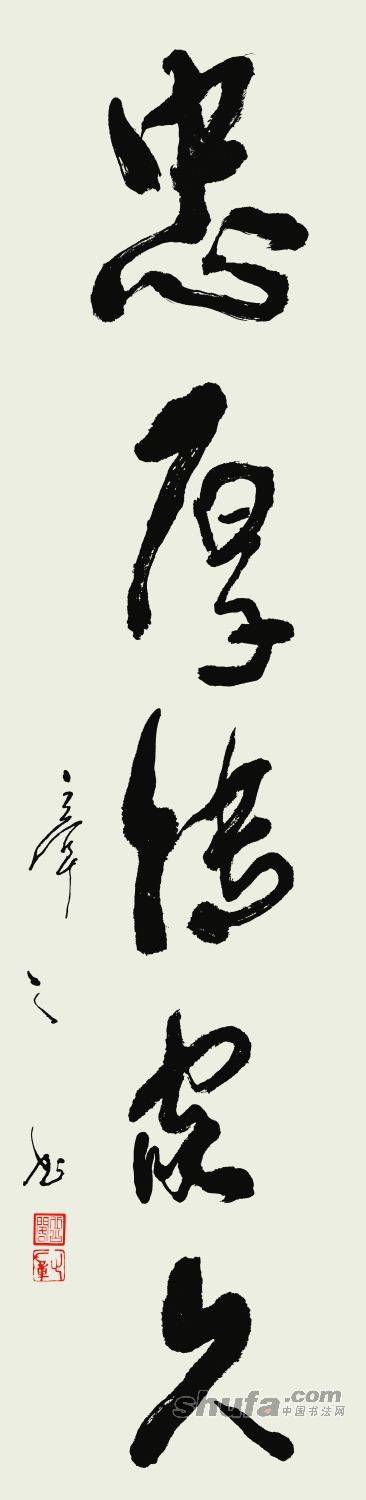 忠厚傳家久
shufa.com
中国书法网